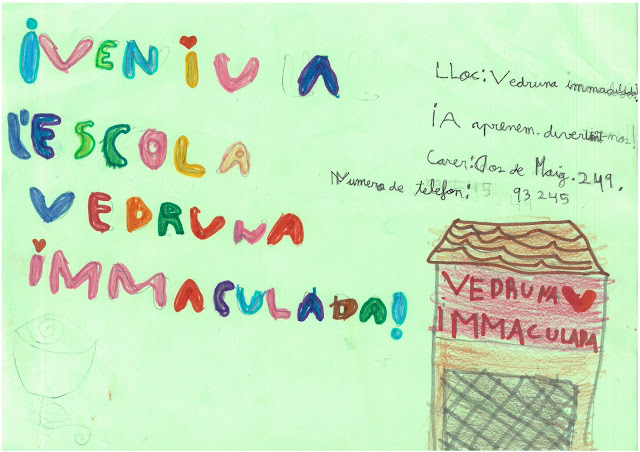 ¡VENiU A
L'ESCOLA
VEDRUNA
iMMACULADA!
Lloc: Vedruna immaculada!
¡A aprenem. divertint-nos!
Carer: Dos de Maig. 249.
Numero de telefon: 93 245
VEDRUNA
iMMACULADA